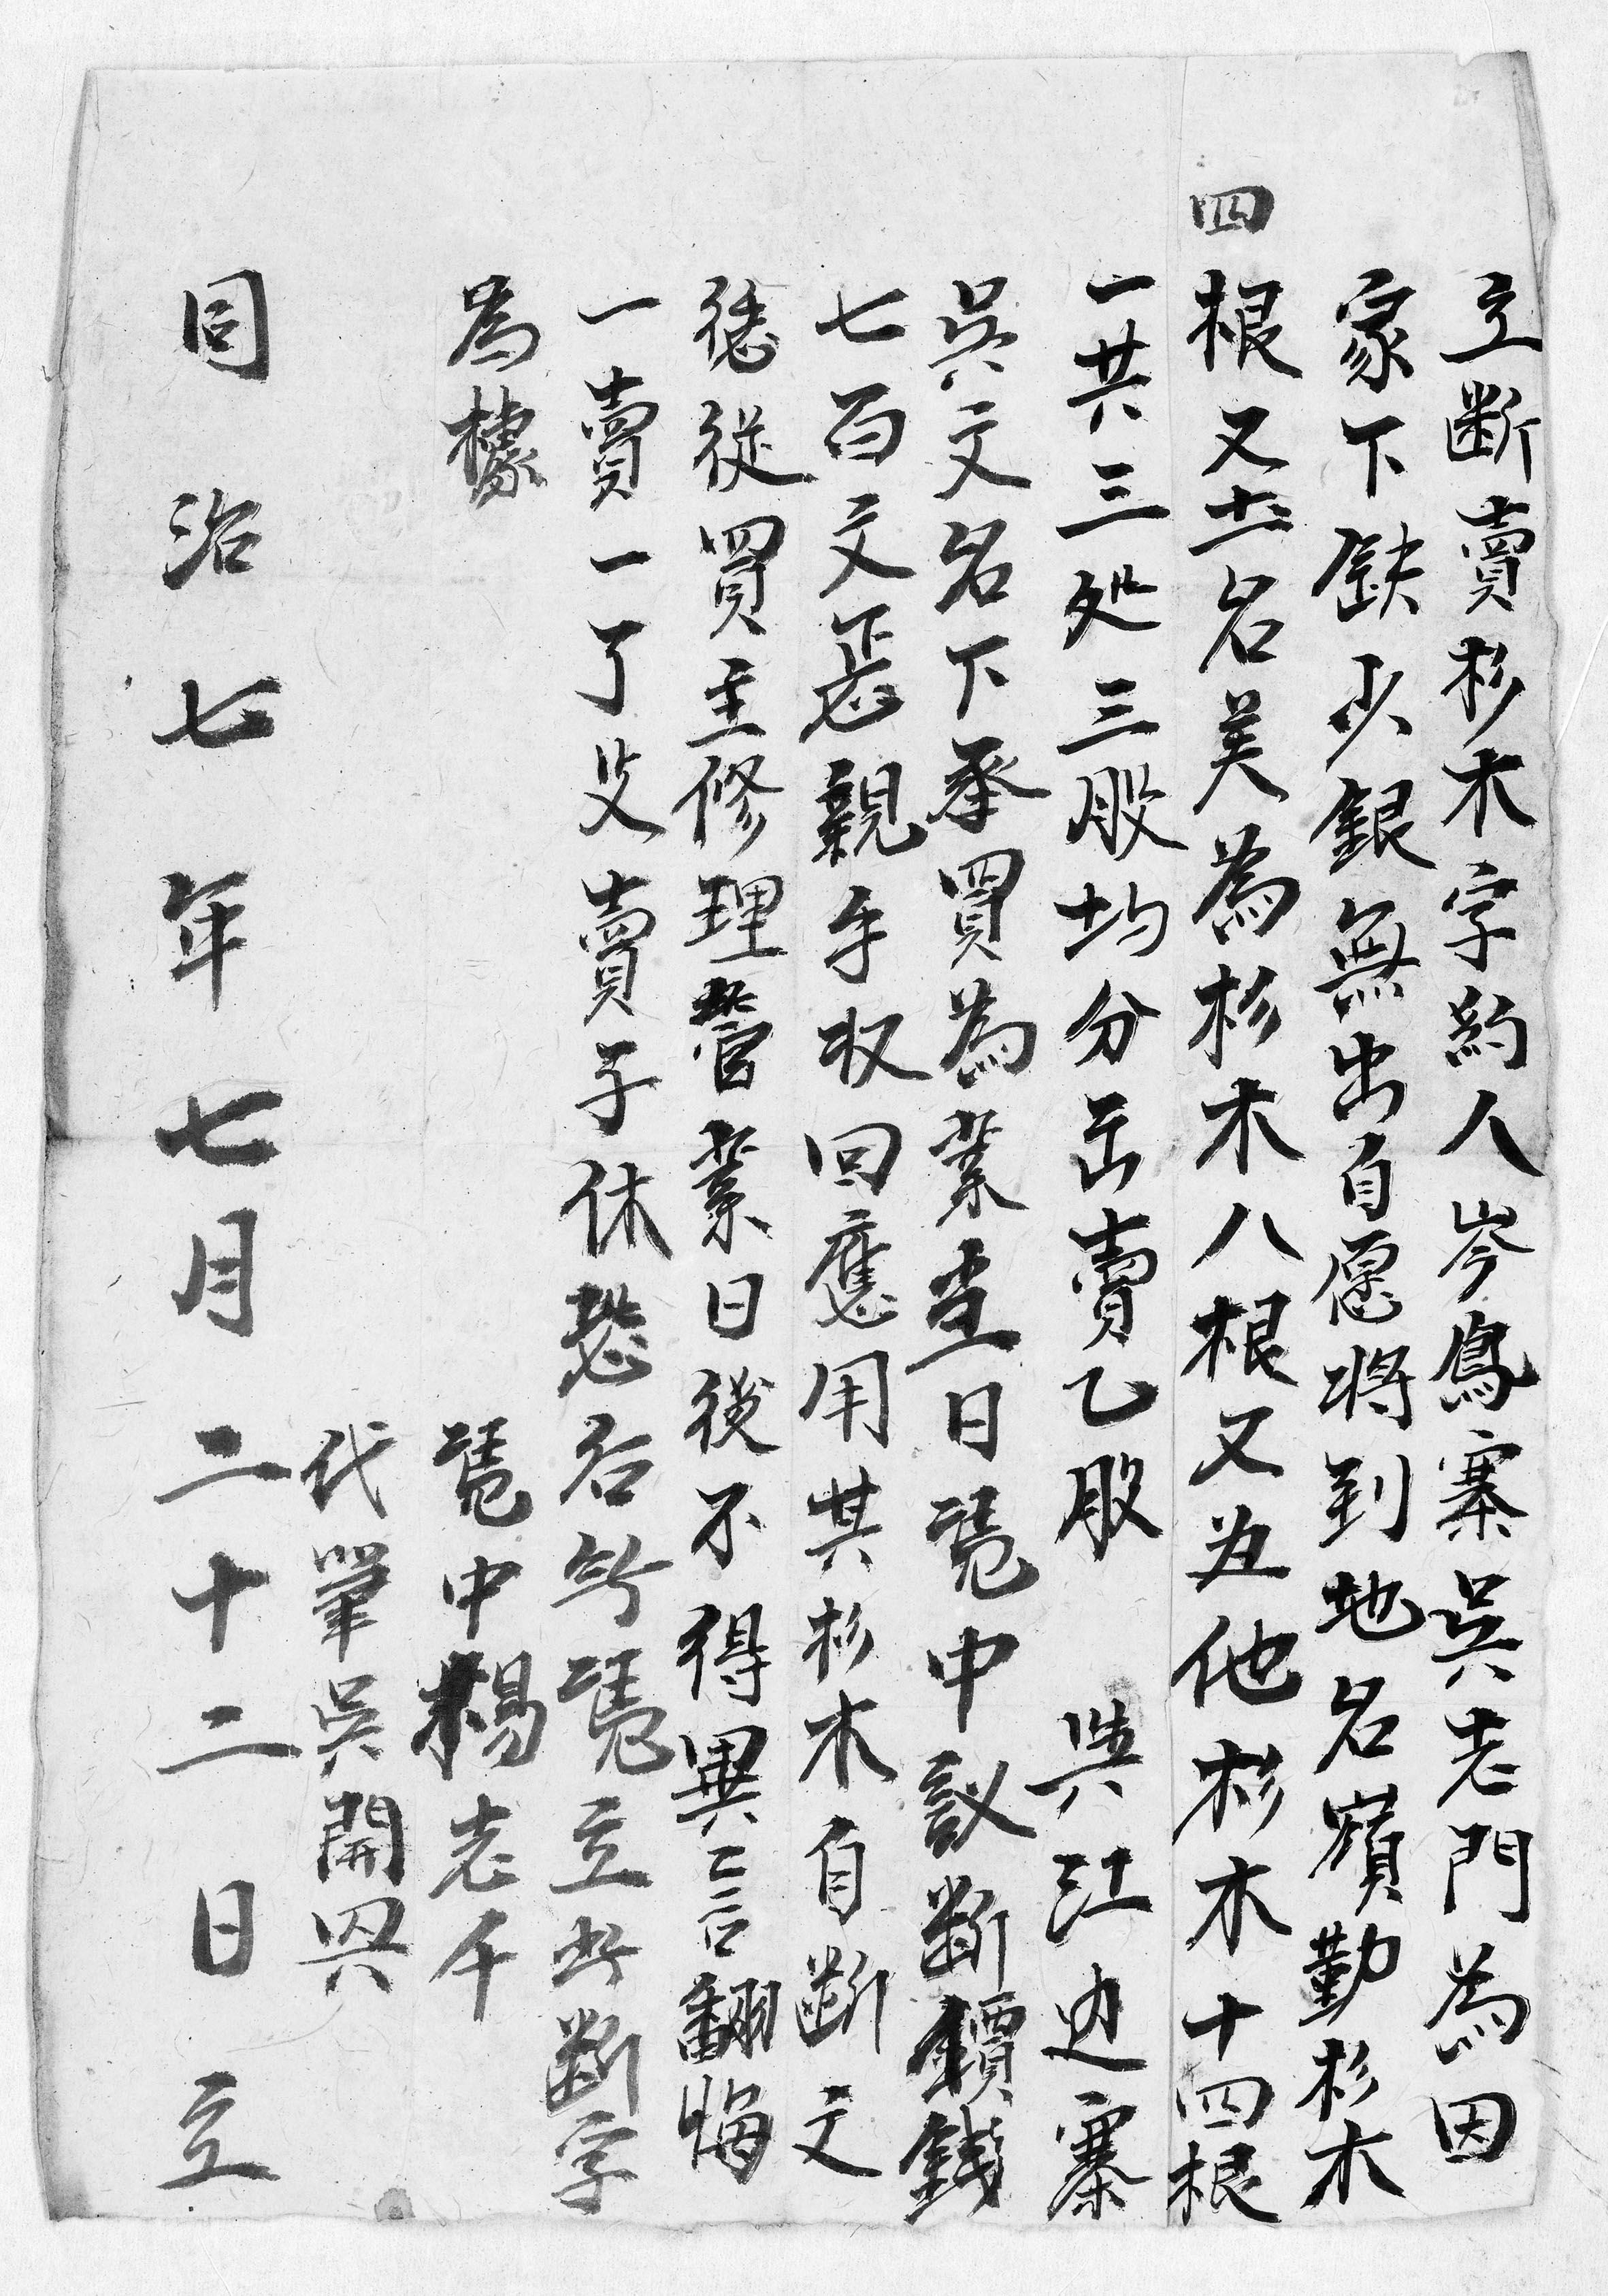 立断賣杉木字約人岑鳥寨吳老門為因
家下缺少銀無出自愿将到地名嶺勤杉木
四根又土名美為杉木八根又並他杉木十四根
一共三处三股均分出賣乙股 與江边寨
吳文名下承買為業当日凴中議斷價錢
七百文正親手収回應用其杉木自断之
後従買主修理管業日後不得異言翻悔
一賣一了父賣子休恐后無凴立此断字
為據
凴中楊老千
代筆吳開興
同治七年七月二十二日立